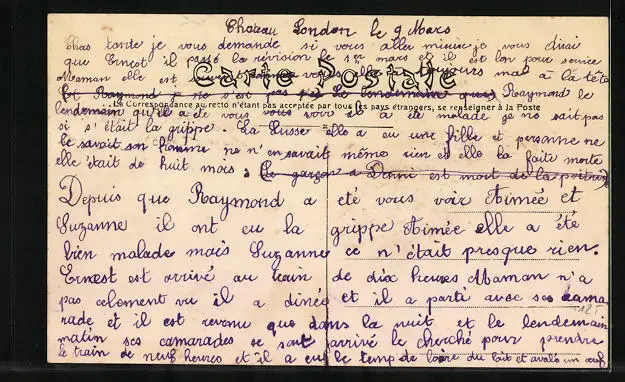 Chateau London le 9 Mars
Chas tante je vous demande si vous aller mieux je vous dirai
que Ernest il passé la révision le 1er mars et il est bon pour service
Maman elle est mal à la tête
Carte Postale
Et Raymond je ne le lendemain que Raymond le
La Correspondance au recto n'étant pas acceptée par tous les pays étrangers, se renseigner à la Poste
lendemain qu'il a ete vous voir il a été malade je ne sait pas
si s'était la grippe. La Lusse elle a eu une fille et personne ne
le savait son homme ne n'en savait même rien et elle la faite morte
elle était de huit mois. Le garçon a est mort de la poitrine
Depuis que Raymond a eté vous voir Aimée et
Suzanne il ont eu la grippe Aimée elle a été
bien malade mais Suzanne ce n'était presque rien.
Ernest est arrivé au train de dix heures Maman n'a
pas celement vu il a dinée et il a parti avec ses cama
rade et il est revenu que dans la nuit et le lendemain
matin ses camarades se sont arrivé le cherché pour prendre
le train de neuf heures et il a eu le temp de boire du lait et avalé un œuf